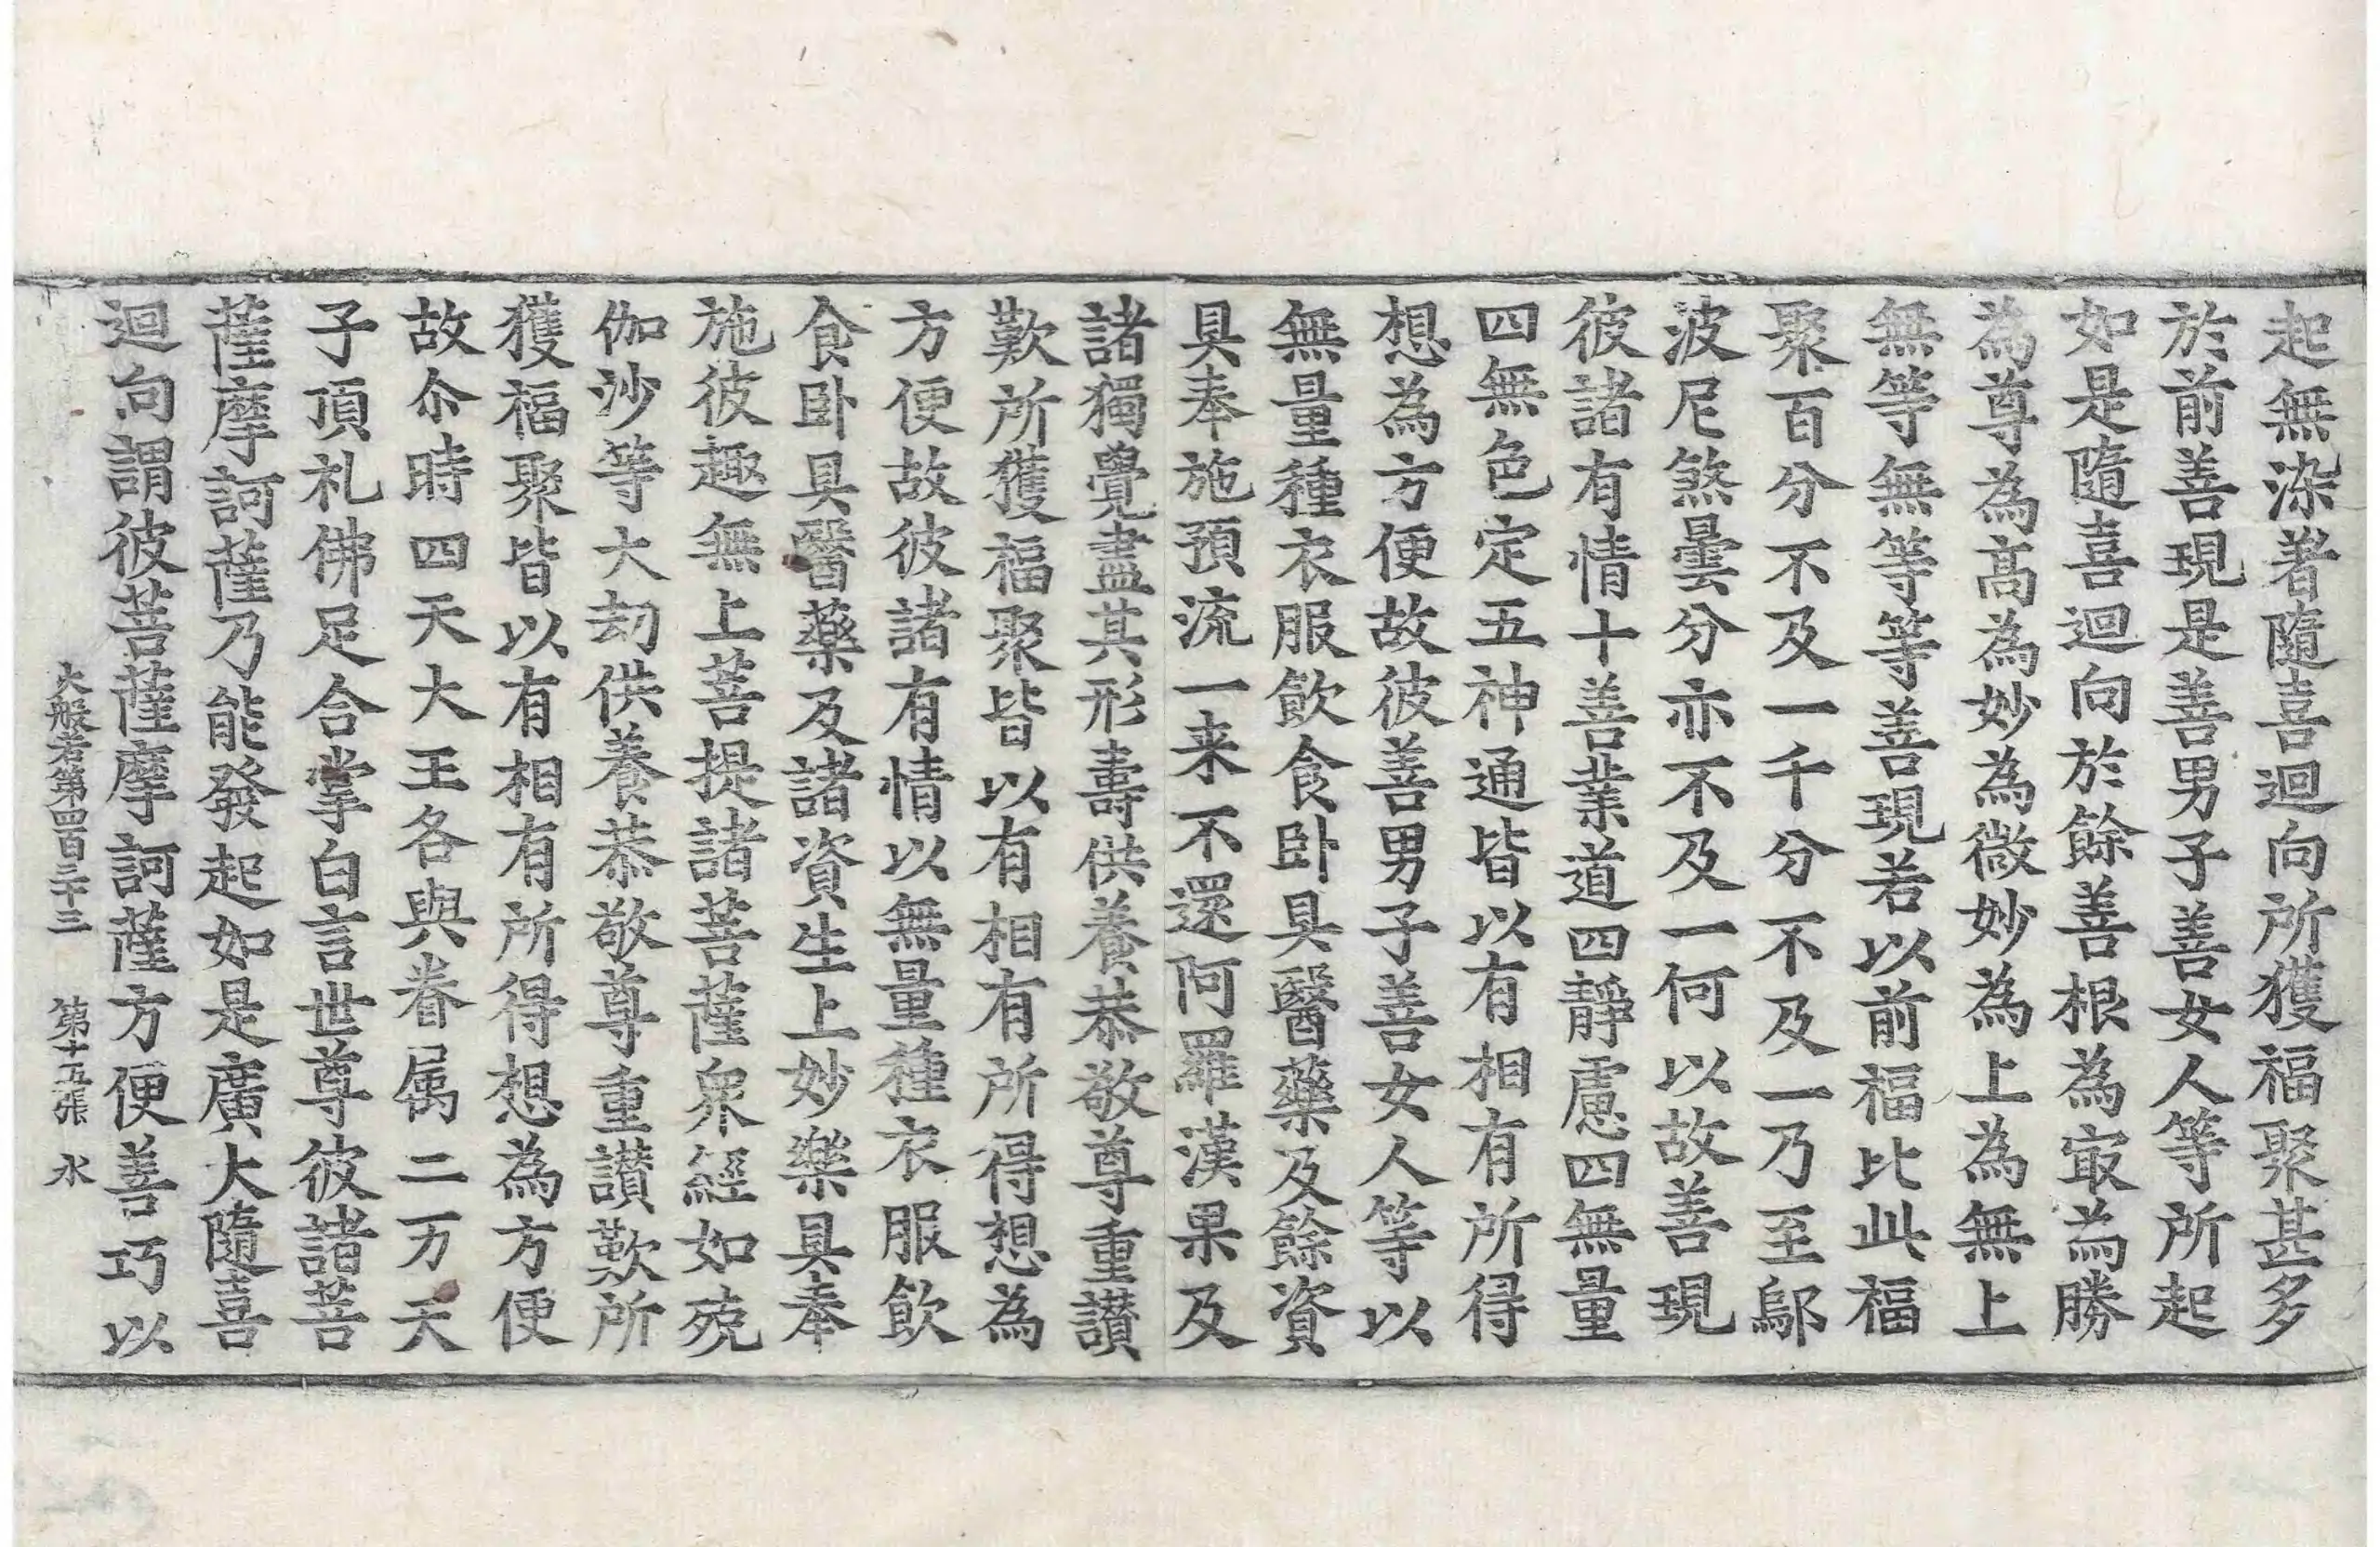 起無染著隨喜迴向所獲福聚甚多
於前善現是善男子善女人等所起
如是隨喜迴向於餘善根為㝡為勝
為尊為高為妙為微妙為上為無上
無等無等等善現若以前福比此福
聚百分不及一千分不及一乃至鄔
波尼煞曇分亦不及一何以故善現
彼諸有情十善業道四靜慮四無量
四無色定五神通皆以有相有所得
想為方便故彼善男子善女人等以
無量種衣服飲食卧具醫藥及餘資
具奉施預流一来不還阿羅漢果及
諸獨覺盡其形壽供養恭敬尊重讃
歎所獲福聚皆以有相有所得想為
方便故彼諸有情以無量種衣服飲
食卧具醫藥及諸資生上妙樂具奉
施彼趣無上菩提諸菩薩衆經如殑
伽沙等大刧供養恭敬尊重讃歎所
獲福聚皆以有相有所得想為方便
故尒時四天大王各與眷属二万天
子頂礼佛足合掌白言世尊彼諸菩
薩摩訶薩乃能發起如是廣大隨喜
迴向謂彼菩薩摩訶薩方便善巧以
大般若第四百三十三 第十五張 水